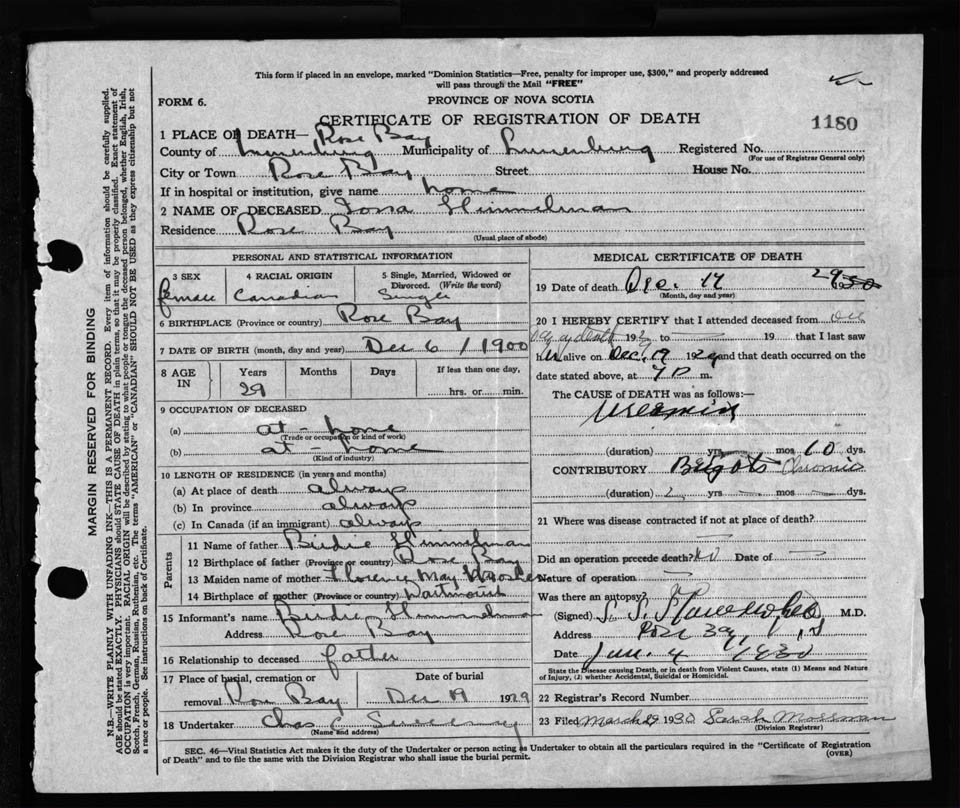 This form if placed in an envelope, marked "Dominion Statistics—Free, penalty for improper use, $300," and properly addressed
will pass through the Mail "FREE"
FORM 6.
PROVINCE OF NOVA SCOTIA
CERTIFICATE OF REGISTRATION OF DEATH
1180
1 PLACE OF DEATH— Rose Bay
County of Lunenburg Municipality of Lunenburg Registered No.
(For use of Registrar General only)
City or Town Rose Bay Street House No.
If in hospital or institution, give name home
2 NAME OF DECEASED Himmelman
Residence Rose Bay
(Usual place of abode)
PERSONAL AND STATISTICAL INFORMATION
3 SEX
female
4 RACIAL ORIGIN
Canadian
5 Single, Married, Widowed or
Divorced. (Write the word)
Single
6 BIRTHPLACE (Province or country) Rose Bay
7 DATE OF BIRTH (month, day and year) Dec 6 / 1900
8 AGE
IN
Years
29
Months
Days
If less than one day,
hrs. or min.
9 OCCUPATION OF DECEASED
(a) at - home
(Trade or occupation or kind of work)
(b) at home
(Kind of industry)
10 LENGTH OF RESIDENCE (in years and months)
(a) At place of death always
(b) In province always
(c) In Canada (if an immigrant) always
Parents
11 Name of father Birdie Himmelman
12 Birthplace of father (Province or country) Rose Bay
13 Maiden name of mother Florence May
14 Birthplace of mother (Province or country) Dartmouth
15 Informant's name Birdie Himmelman
Address Rose Bay
16 Relationship to deceased father
17 Place of burial, cremation or
removal Rose Bay
Date of burial
Dec 19 1929
18 Undertaker Chas
(Name and address)
MEDICAL CERTIFICATE OF DEATH
19 Date of death Dec. 17 29
(Month, day and year)
20 I HEREBY CERTIFY that I attended deceased from
day of death 19 to 19 that I last saw
her alive on Dec. 1929 and that death occurred on the
date stated above, at m.
The CAUSE of DEATH was as follows:—
(duration) yrs. mos 10 dys.
CONTRIBUTORY Chronic
(duration) 2 yrs mos dys.
21 Where was disease contracted if not at place of death?
Did an operation precede death? No Date of
Nature of operation
Was there an autopsy?
(Signed) M.D.
Address Rose Bay, N.S
Date Jan. 4 1930
State the Disease causing Death, or in death from Violent Causes, state (1) Means and Nature
of Injury, (2) whether Accidental, Suicidal or Homicidal.
22 Registrar's Record Number
23 Filed March 29 1930 Sarah Mossman
(Division Registrar)
SEC. 46—Vital Statistics Act makes it the duty of the Undertaker or person acting as Undertaker to obtain all the particulars required in the "Certificate of Registration
of Death" and to file the same with the Division Registrar who shall issue the burial permit.
(OVER)
MARGIN RESERVED FOR BINDING
N.B.—WRITE PLAINLY WITH UNFADING INK—THIS IS A PERMANENT RECORD. Every item of information should be carefully supplied.
AGE should be stated EXACTLY. PHYSICIANS should STATE CAUSE OF DEATH in plain terms, so that it may be properly classified. Exact statement of
OCCUPATION is very important. RACIAL ORIGIN will be described by stating to what people or tongue the deceased person belonged, whether English, Irish,
Scotch, French, German, Russian, Ruthenian, etc. The terms "AMERICAN" or "CANADIAN" SHOULD NOT BE USED as they express citizenship but not
a race or people. See instructions on back of Certificate.